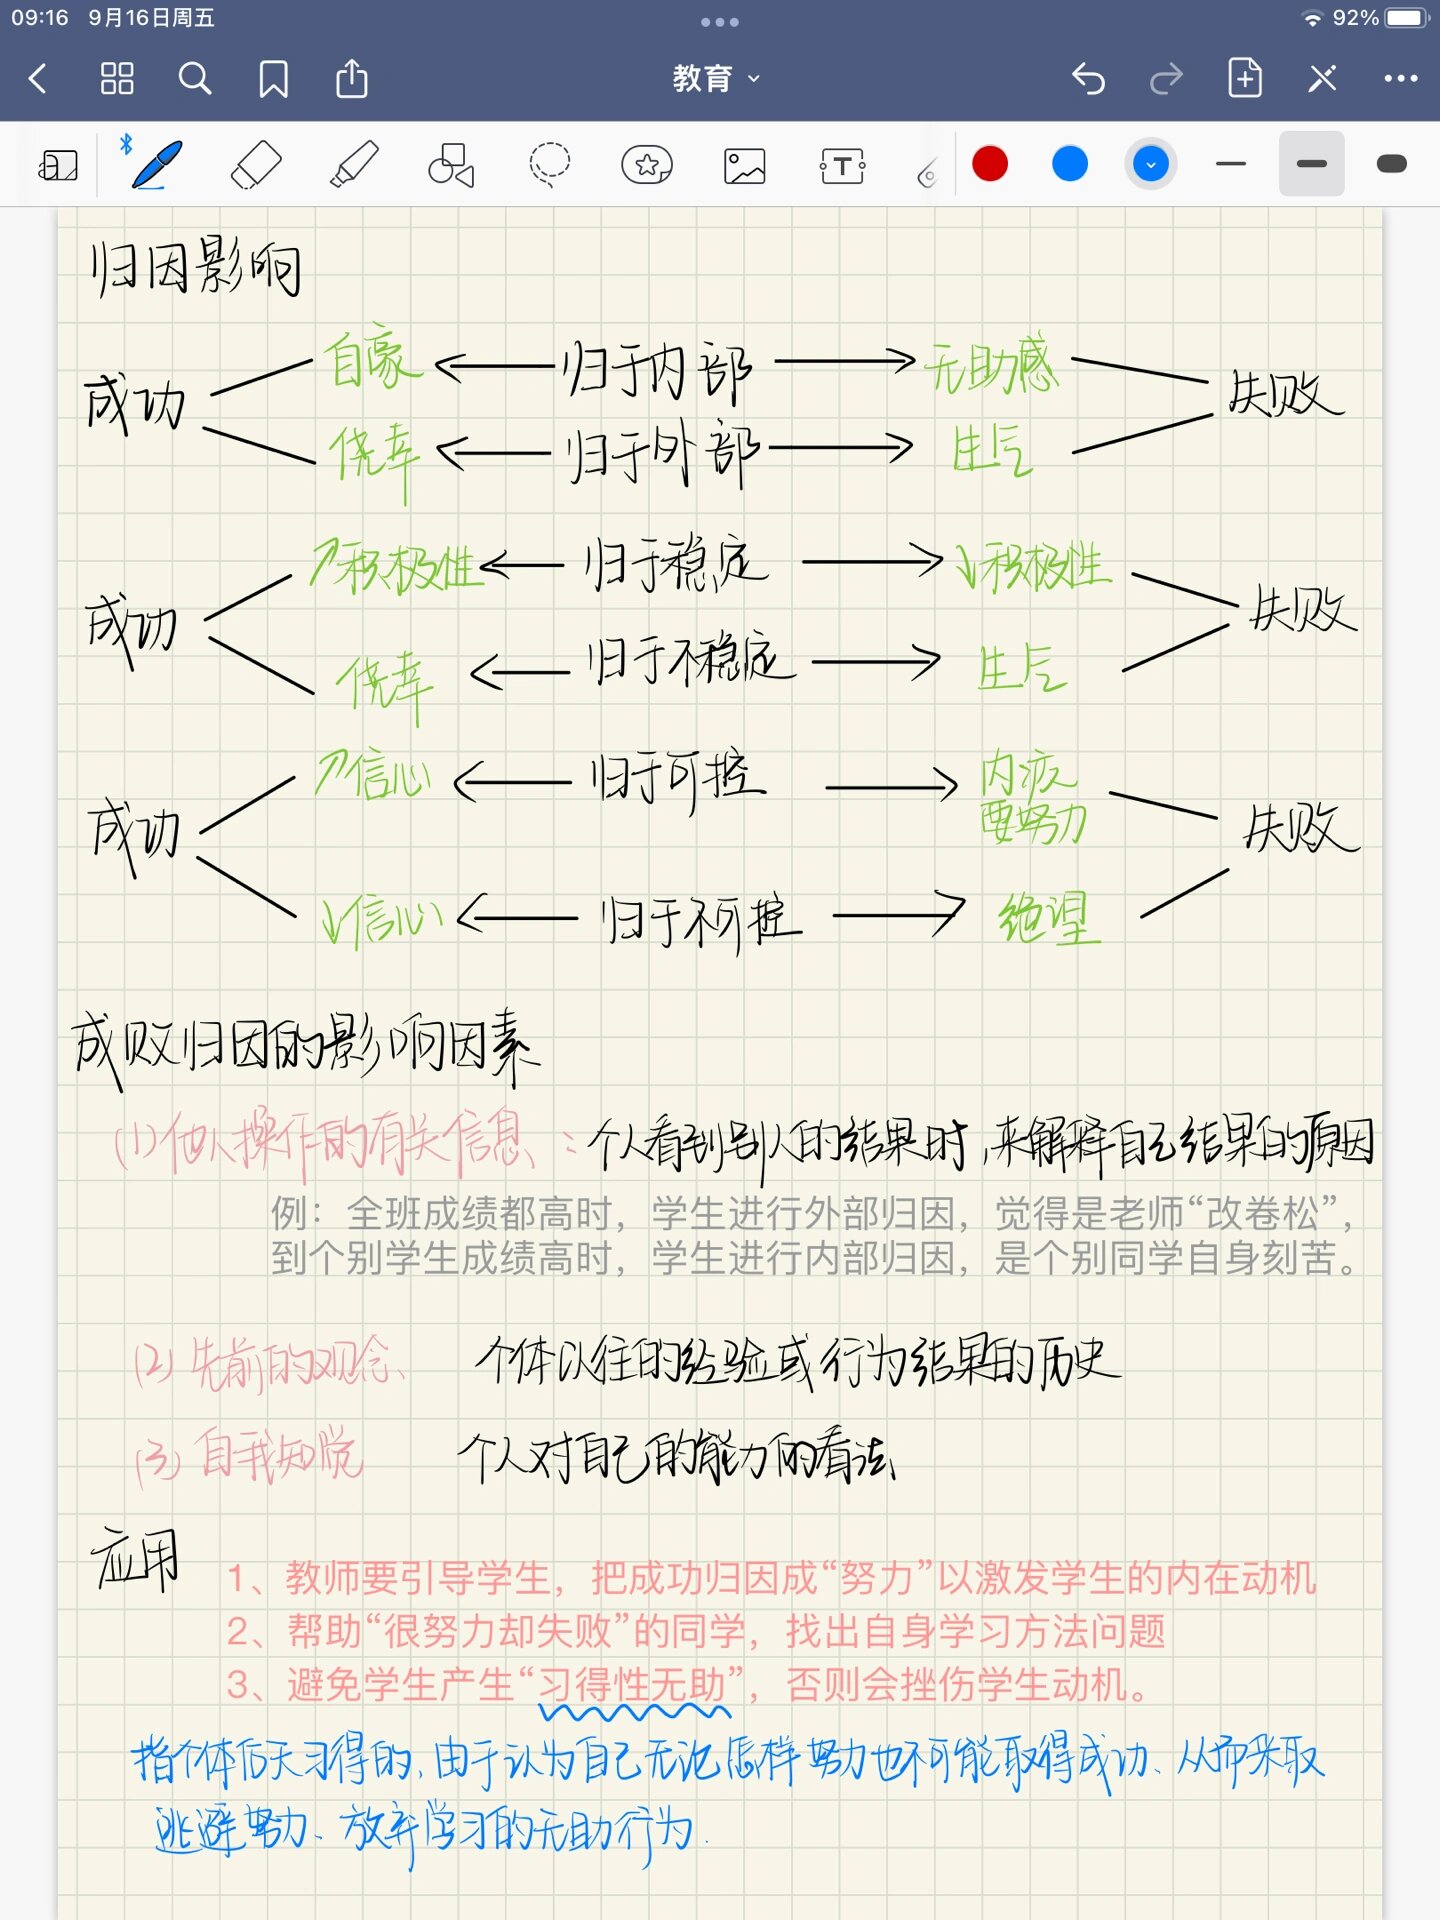 09:16 9月16日周五 92%
教育
归因影响
自豪 归于内部 无助感
成功 失败
侥幸 归于外部 生气
↗积极性 归于稳定 ↓积极性
成功 失败
侥幸 归于不稳定 生气
↗信心 归于可控 内疚
要努力
成功 失败
↓信心 归于不可控 绝望
成败归因的影响因素
(1)他人操作的有关信息：个人看到别人的结果时,来解释自己结果的原因
例：全班成绩都高时，学生进行外部归因，觉得是老师“改卷松”，
到个别学生成绩高时，学生进行内部归因，是个别同学自身刻苦。
(2)先前的观念、 个体以往的经验或行为结果的历史
(3)自我知觉 个人对自己的能力的看法
应用
1、教师要引导学生，把成功归因成“努力”以激发学生的内在动机
2、帮助“很努力却失败”的同学，找出自身学习方法问题
3、避免学生产生“习得性无助”，否则会挫伤学生动机。
指个体后天习得的,由于认为自己无论怎样努力也不可能取得成功、从而采取
逃避努力、放弃学习的无助行为.